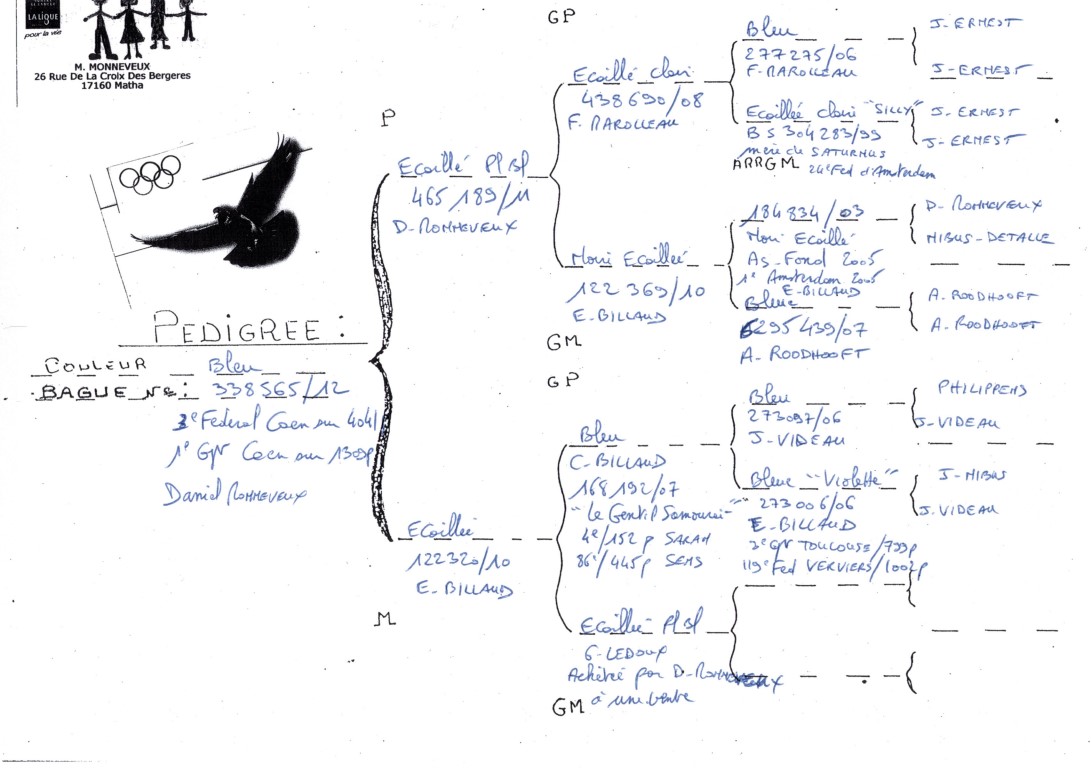 LA LIGUE
pour la vie
M. MONNEVEUX
26 Rue De La Croix Des Bergeres
17160 Matha
PEDIGREE :
COULEUR Bleu
BAGUE No: 338565/12
3e Federal Caen sur 404
1e GN Caen sur 1309p
Daniel MONNEVEUX
P
Ecaillé Pl Bl
465 189/11
D-MONNEVEUX
M
Ecaillée
122320/10
E. BILLAUD
GP
Ecaillé clair
438690/08
F. MAROLLEAU
Noire Ecaillée
122 369/10
E-BILLAUD
GM
GP
Bleu
C-BILLAUD
168 192/07
"Le Gentil Samourai"
4e/152 p SARAN
86e/445p SENS
Ecaillée Pl Bl
G-LEDOUX
Achetée par D-MONNEVEUX
GM à une vente
Bleu
277275/06
F-MAROLLEAU
Ecaillée claire "SILLY"
BS 304283/99
mère de SATURNUS
ARRGM 24e Fed d'Amsterdam
184834/03
Noir Ecaillé
As-Fond 2005
1e Amsterdam 2005
E-BILLAUD
Bleue
6295439/07
A-ROODHOOFT
Bleu
273097/06
J-VIDEAU
Bleue "Violette"
273006/06
E-BILLAUD
3e GN TOULOUSE/799p
119e Fed VERVIERS/1002p
J-ERNEST
J-ERNEST
J-ERNEST
J-ERNEST
D-MONNEVEUX
NIBUS-DETALLE
A. ROODHOOFT
A. ROODHOOFT
PHILIPPENS
J-VIDEAU
J-NIBUS
J.VIDEAU